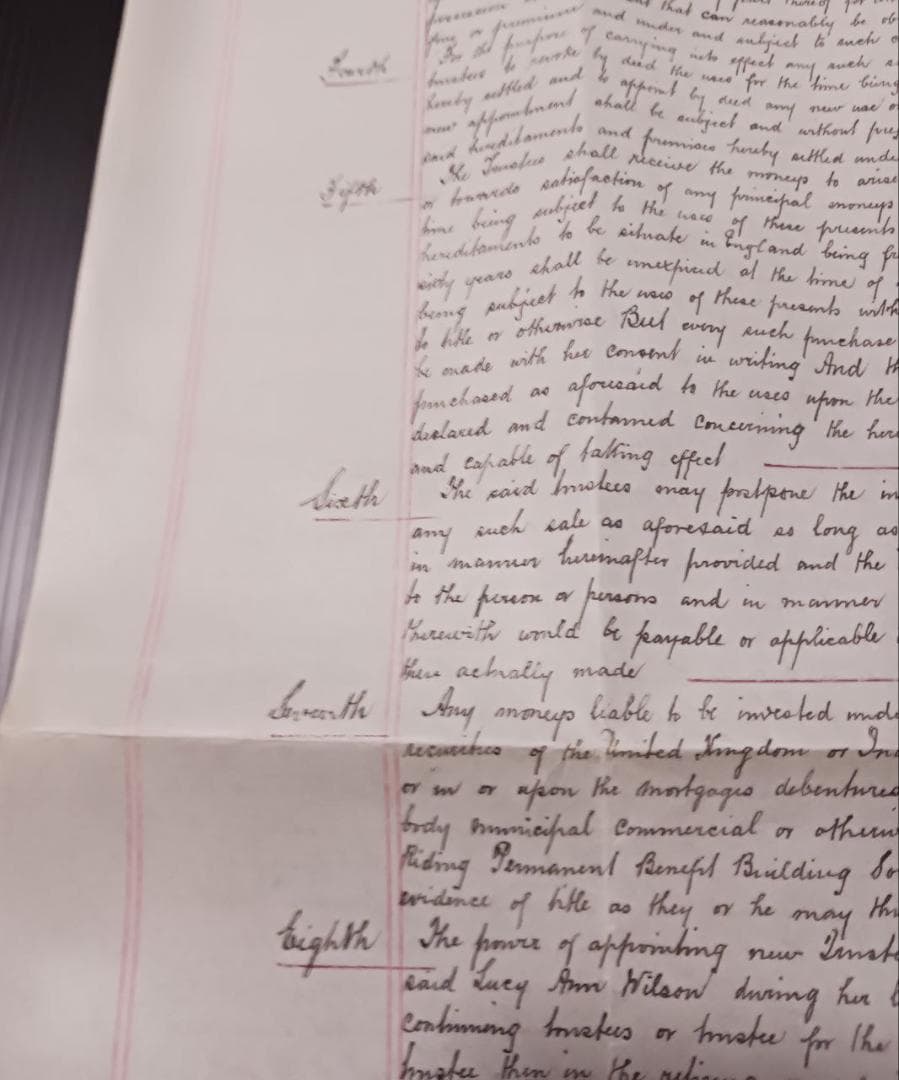 that can reasonably be ob
fine or premium and under and subject to such c
Fourth For the purpose of carrying into effect any such s
trustees to revoke by deed the uses for the time being
hereby settled and to appoint by deed any new use o
new appointment shall be subject and without prej
said hereditaments and premises hereby settled unde
Fifth The Trustees shall receive the moneys to arise
or towards satisfaction of any principal moneys
time being subject to the uses of these presents
hereditaments to be situate in England being fr
sixty years shall be unexpired at the time of
being subject to the uses of these presents with
to title or otherwise But every such purchase
be made with her consent in writing And th
purchased as aforesaid to the uses upon the
declared and contained concerning the her
and capable of taking effect
Sixth The said trustees may postpone the in
any such sale as aforesaid so long as
in manner hereinafter provided and the
to the person or persons and in manner
therewith would be payable or applicable
there actually made
Seventh Any moneys liable to be invested unde
securities of the United Kingdom or In
or in or upon the mortgages debentures
body municipal commercial or otherwi
Riding Permanent Benefit Building So
evidence of title as they or he may thi
Eighth The power of appointing new Truste
said Lucy Ann Wilson during her l
continuing trustees or trustee for the
trustee then in the